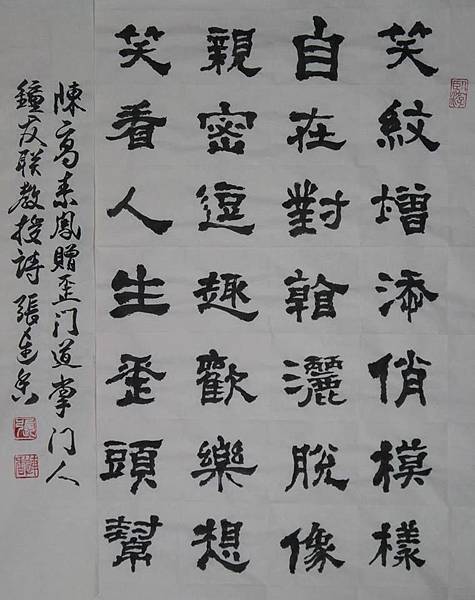 笑紋增添俏模樣
自在對灑脫像
親密逗趣歡樂想
笑看人生歪頭幫
陳高素鳳贈歪门道掌门人
鐘友联教授詩 張